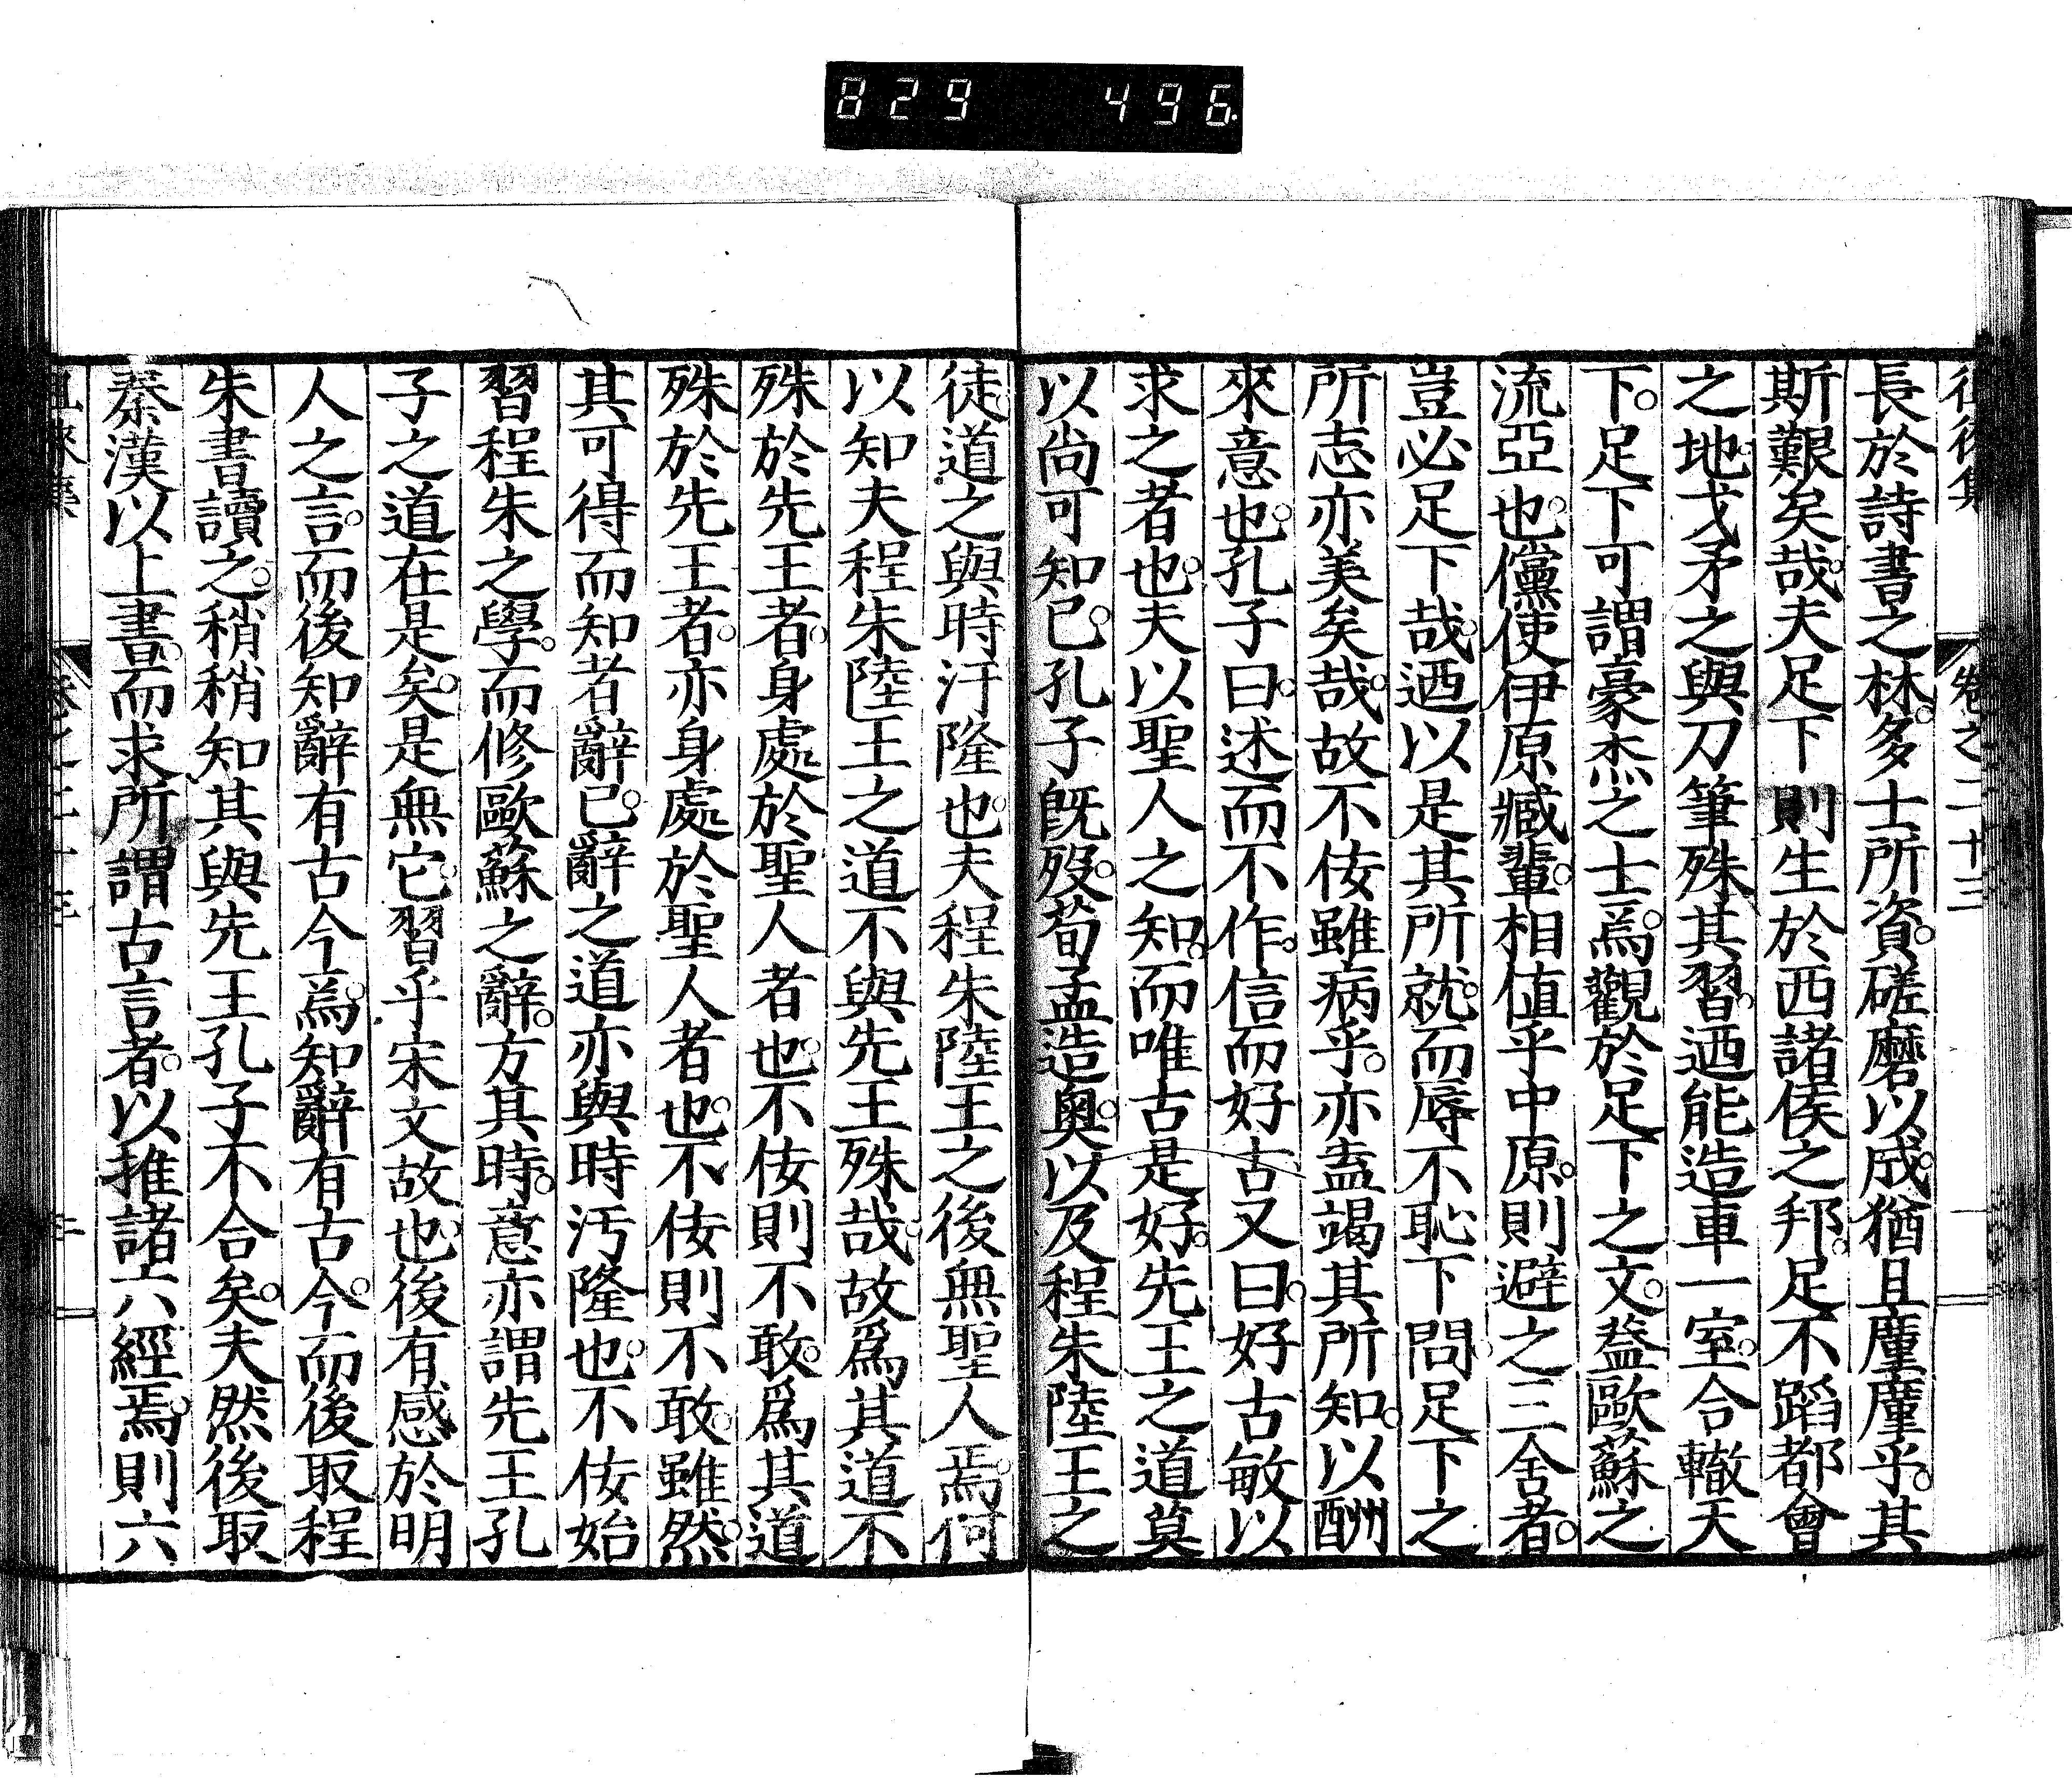 829 496
卷之二十三
長於詩書之林。多士所資。磋磨以成。猶且廑廑乎。其
斯艱矣哉。夫足下則生於西諸侯之邦。足不蹈都會
之地。戈矛之與刀筆殊其習。迺能造車一室。合轍天
下。足下可謂豪杰之士焉。觀於足下之文。葢歐蘇之
流亞也。儻使伊原臧輩。相值乎中原。則避之三舍者。
豈必足下哉。迺以是其所就。而辱不恥下問。足下之
所志亦美矣哉。故不佞雖病乎。亦盍竭其所知。以酬
來意也。孔子曰。述而不作。信而好古。又曰。好古敏以
求之者也。夫以聖人之知。而唯古是好。先王之道莫
以尚可知已。孔子旣歿。荀孟造奧。以及程朱陸王之
徒。道之與時汙隆也。夫程朱陸王之後無聖人焉。何
以知夫程朱陸王之道不與先王殊哉。故爲其道不
殊於先王者。身處於聖人者也。不佞則不敢。爲其道
殊於先王者。亦身處於聖人者也。不佞則不敢。雖然。
其可得而知者辭已。辭之道亦與時汚隆也。不佞始
習程朱之學。而修歐蘇之辭。方其時。意亦謂先王孔
子之道在是矣。是無它。習乎宋文故也。後有感於明
人之言。而後知辭有古今焉。知辭有古今。而後取程
朱書讀之。稍稍知其與先王孔子不合矣。夫然後取
秦漢以上書。而求所謂古言者。以推諸六經焉。則六